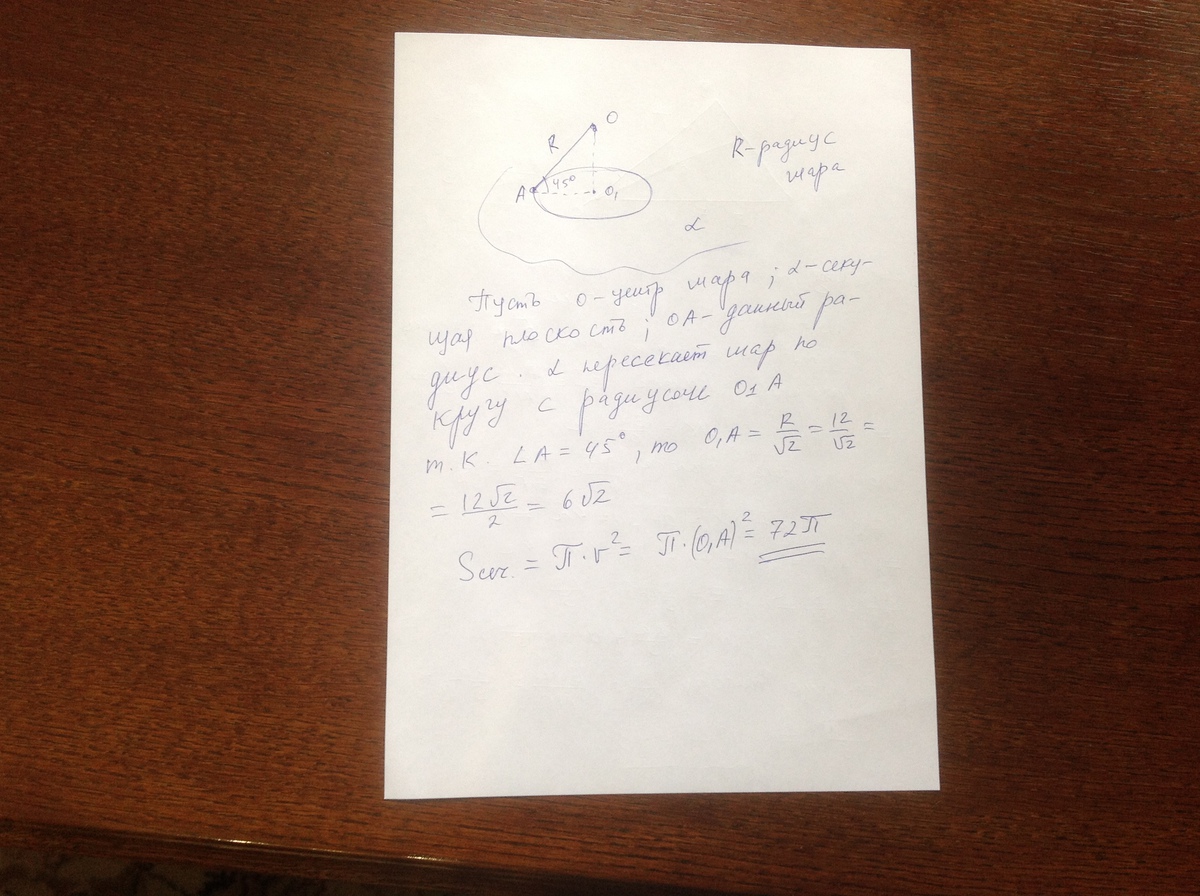 O
R
R-радиус
шара
A 45° O₁
α
Пусть O-центр шара ; α-секу-
щая плоскость ; OA-данный ра-
диус . α пересекает шар по
кругу с радиусом O1 A
т.к. ∠A = 45° , то O₁A = R/√2 = 12/√2 =
= 12√2/2 = 6√2
Sсеч. = π·r² = π·(O₁A)² = 72π